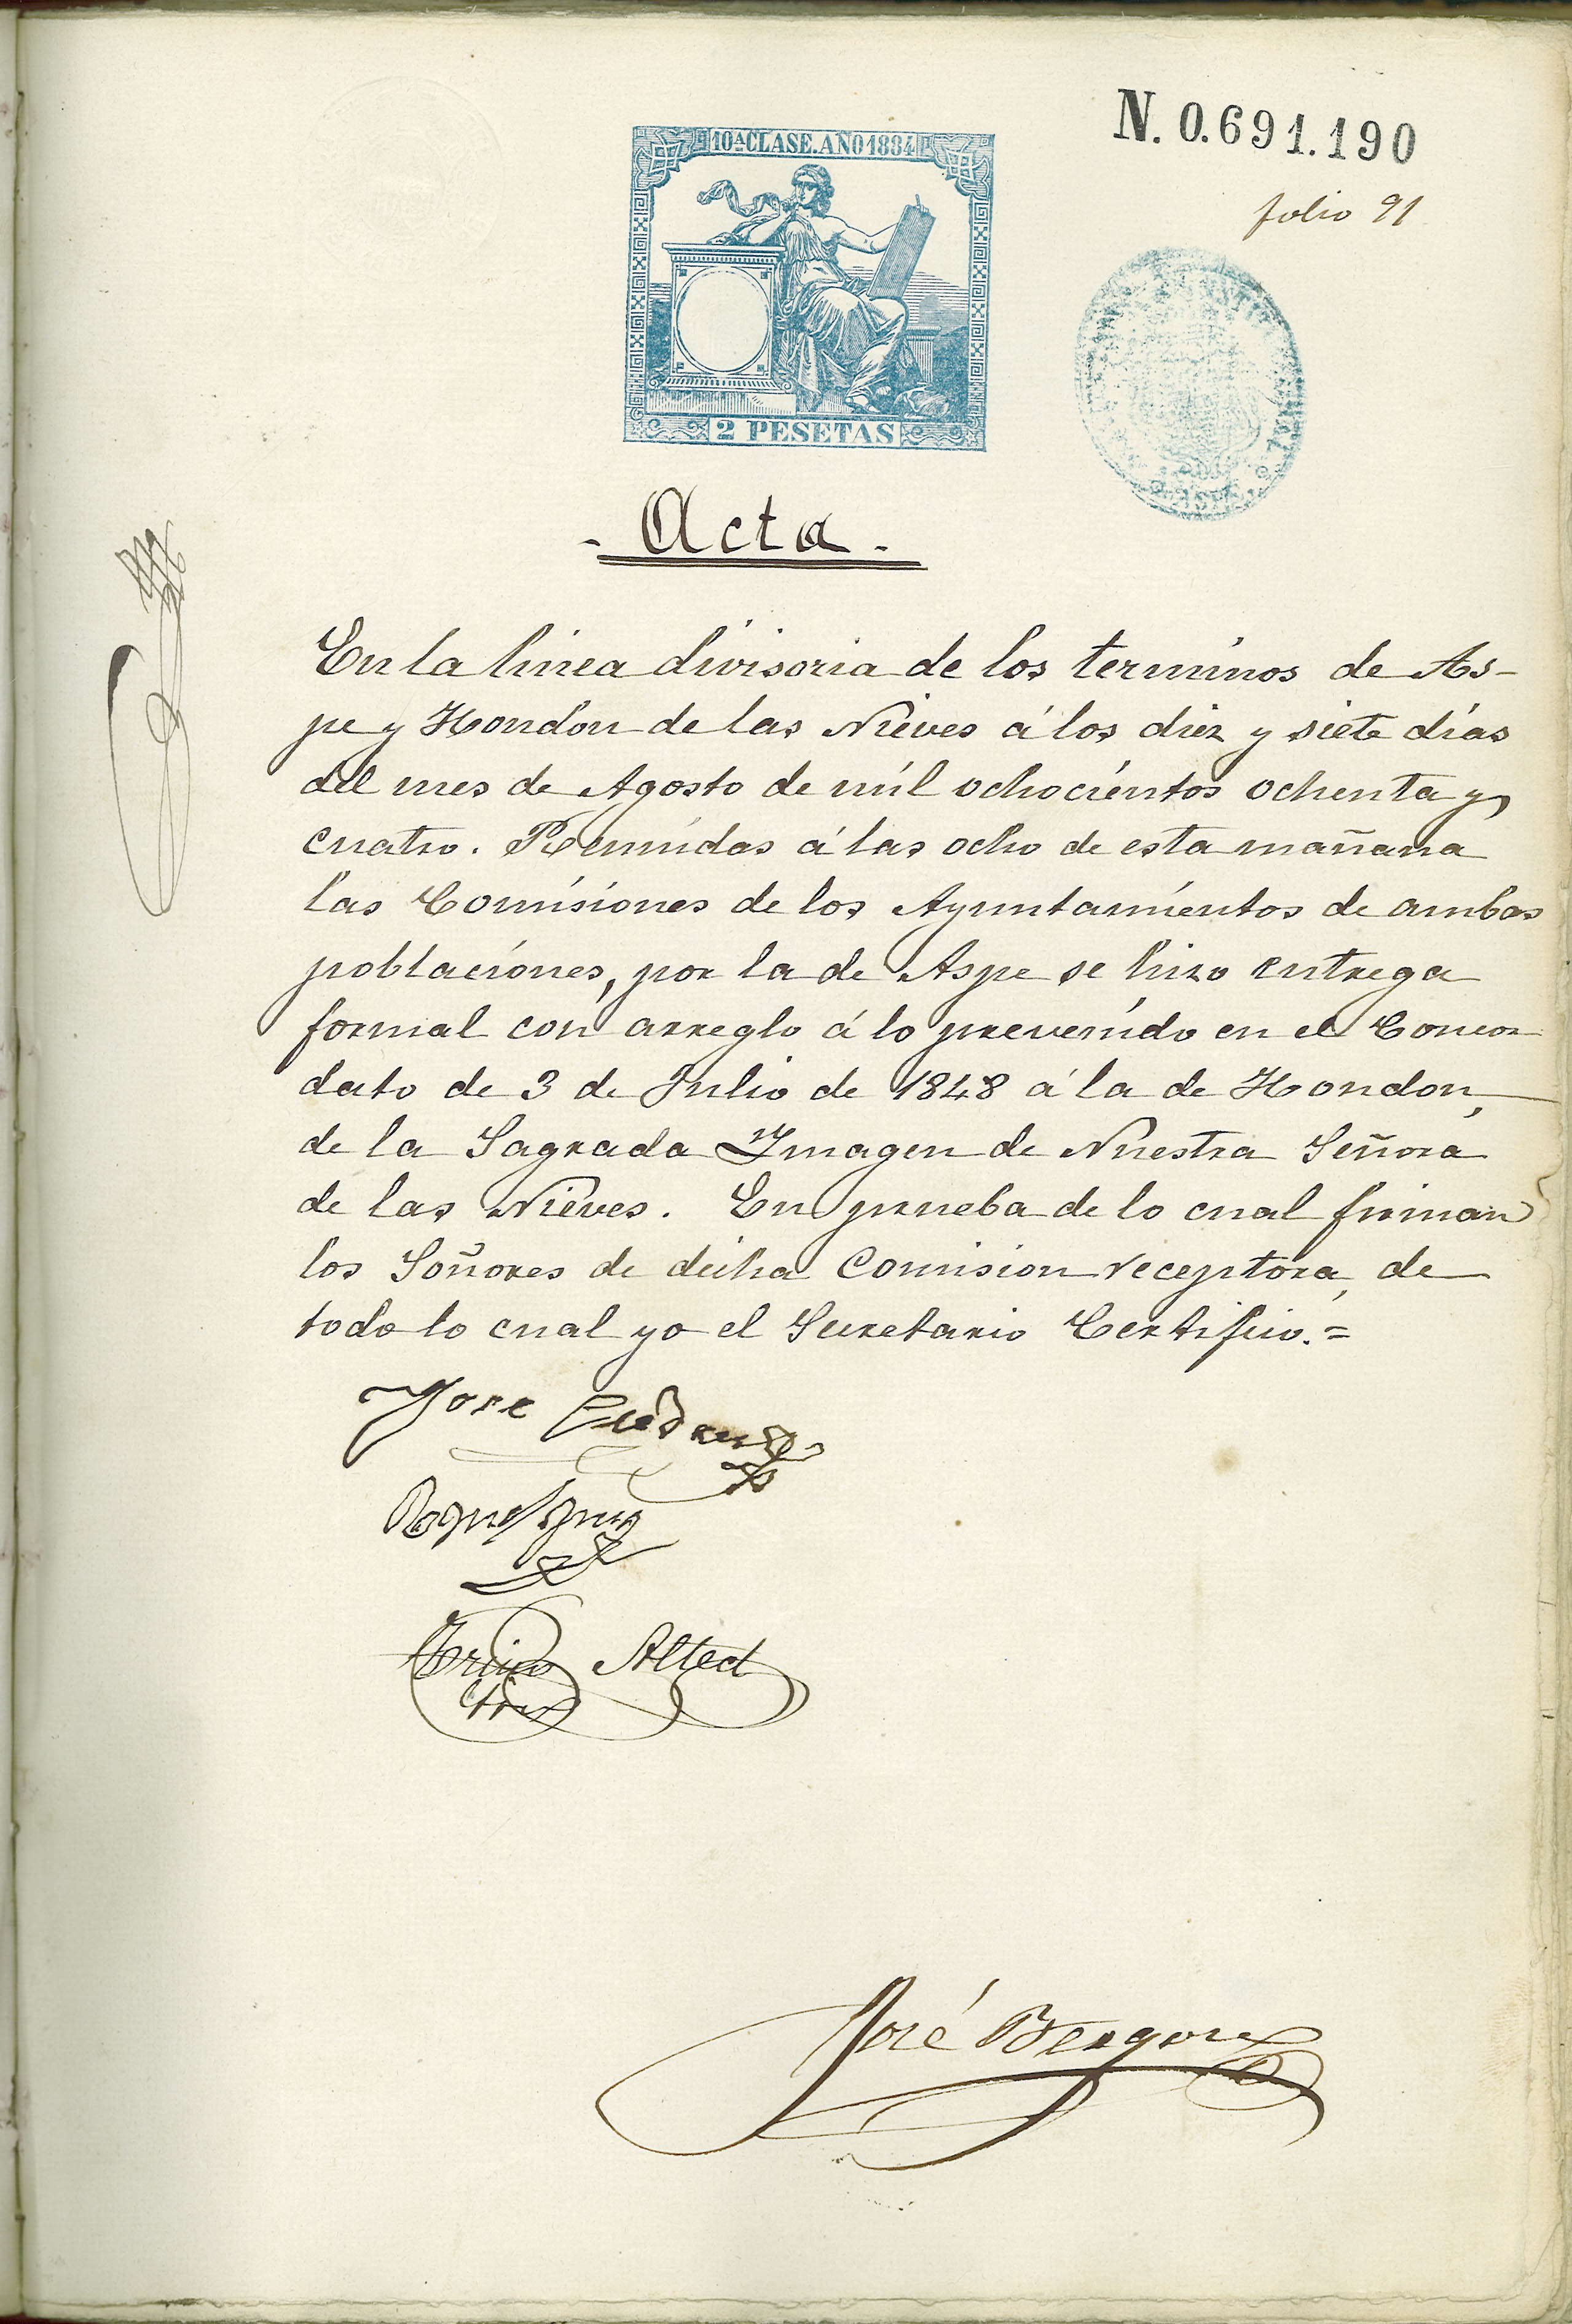 N. 0.691.190
10ª CLASE. AÑO 1884
folio 91
2 PESETAS
- Acta -
En la linea divisoria de los terminos de As-
pe y Hondon de las Nieves á los diez y siete días
del mes de Agosto de mil ochocientos ochenta y
cuatro. Reunidas á las ocho de esta mañana
las Comisiones de los Ayuntamientos de ambas
poblaciones, por la de Aspe se hizo entrega
formal con arreglo á lo prevenido en el Concor
dato de 3 de Julio de 1848 á la de Hondon,
de la Sagrada Ymagen de Nuestra Señora
de las Nieves. En prueba de lo cual firman
los Señores de dicha Comision receptora, de
todo lo cual yo el Secretario Certifico.=
Jose
Alted
José